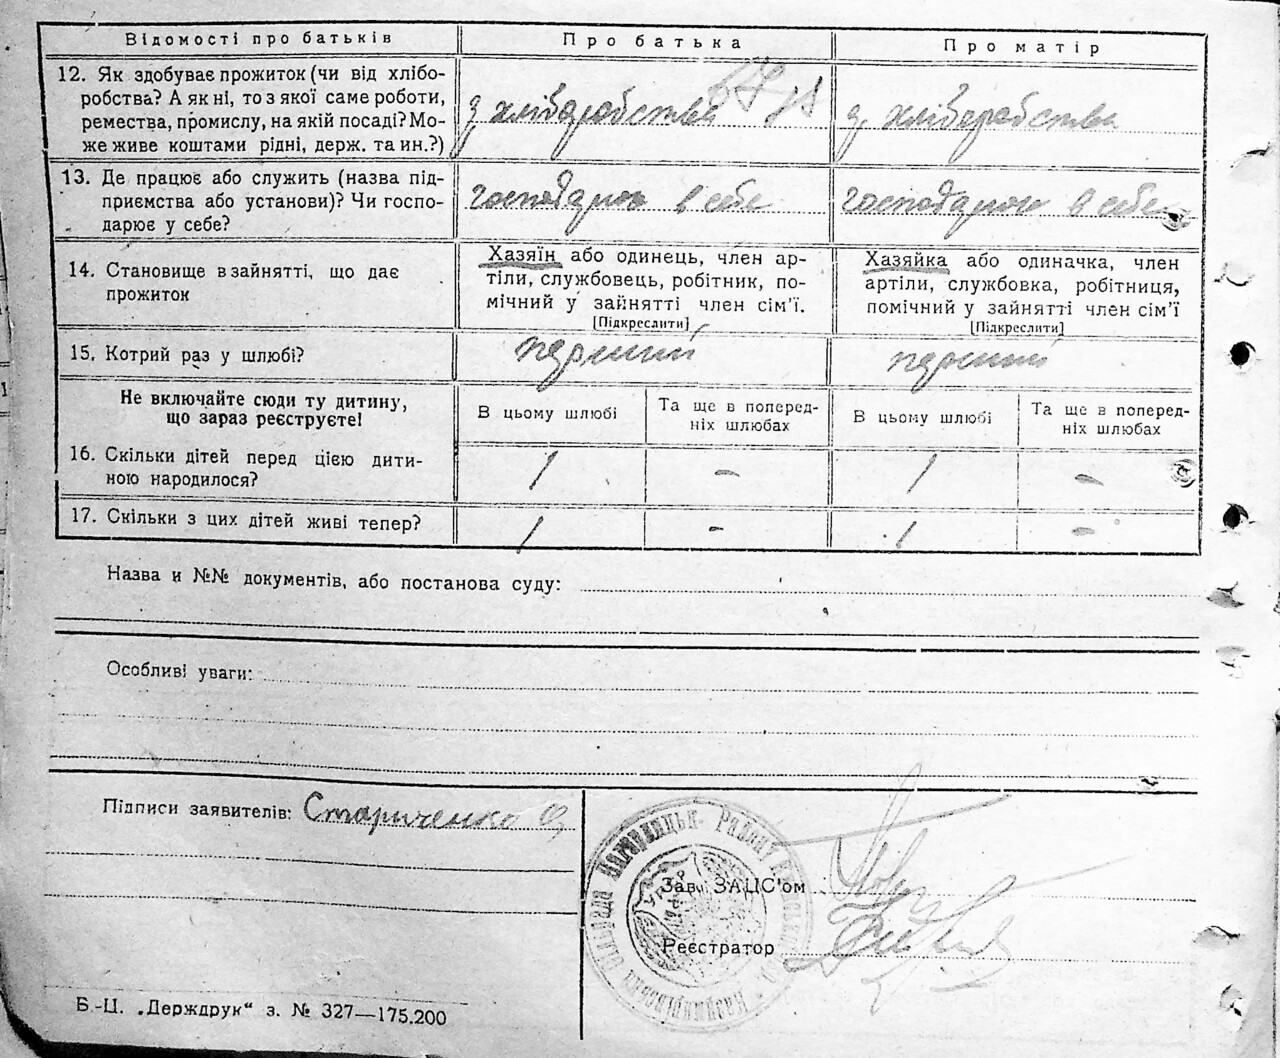 Відомості про батьків
Про батька
Про матір
12. Як здобуває прожиток (чи від хлібо-
робства? А як ні, то з якої саме роботи,
ремества, промислу, на якій посаді? Мо-
же живе коштами рідні, держ. та ин.?)
з хліборобства
з хліборобства
13. Де працює або служить (назва під-
приємства або установи)? Чи госпо-
дарює у себе?
господарює в себе
господарює в себе
14. Становище в зайнятті, що дає
прожиток
Хазяїн або одинець, член ар-
тіли, службовець, робітник, по-
мічний у зайнятті член сім'ї.
[Підкреслити]
Хазяйка або одиначка, член
артіли, службовка, робітниця,
помічний у зайнятті член сім'ї
[Підкреслити]
15. Котрий раз у шлюбі?
перший
перший
Не включайте сюди ту дитину,
що зараз реєструєте!
В цьому шлюбі
Та ще в поперед-
ніх шлюбах
В цьому шлюбі
Та ще в поперед-
ніх шлюбах
16. Скільки дітей перед цією дити-
ною народилося?
1
-
1
-
17. Скільки з цих дітей живі тепер?
1
-
1
-
Назва и №№ документів, або постанова суду:
Особливі уваги:
Підписи заявителів: Стариченко
Зав. ЗАЦС'ом
Реєстратор
Б.-Ц. „Держдрук“ з. № 327—175.200